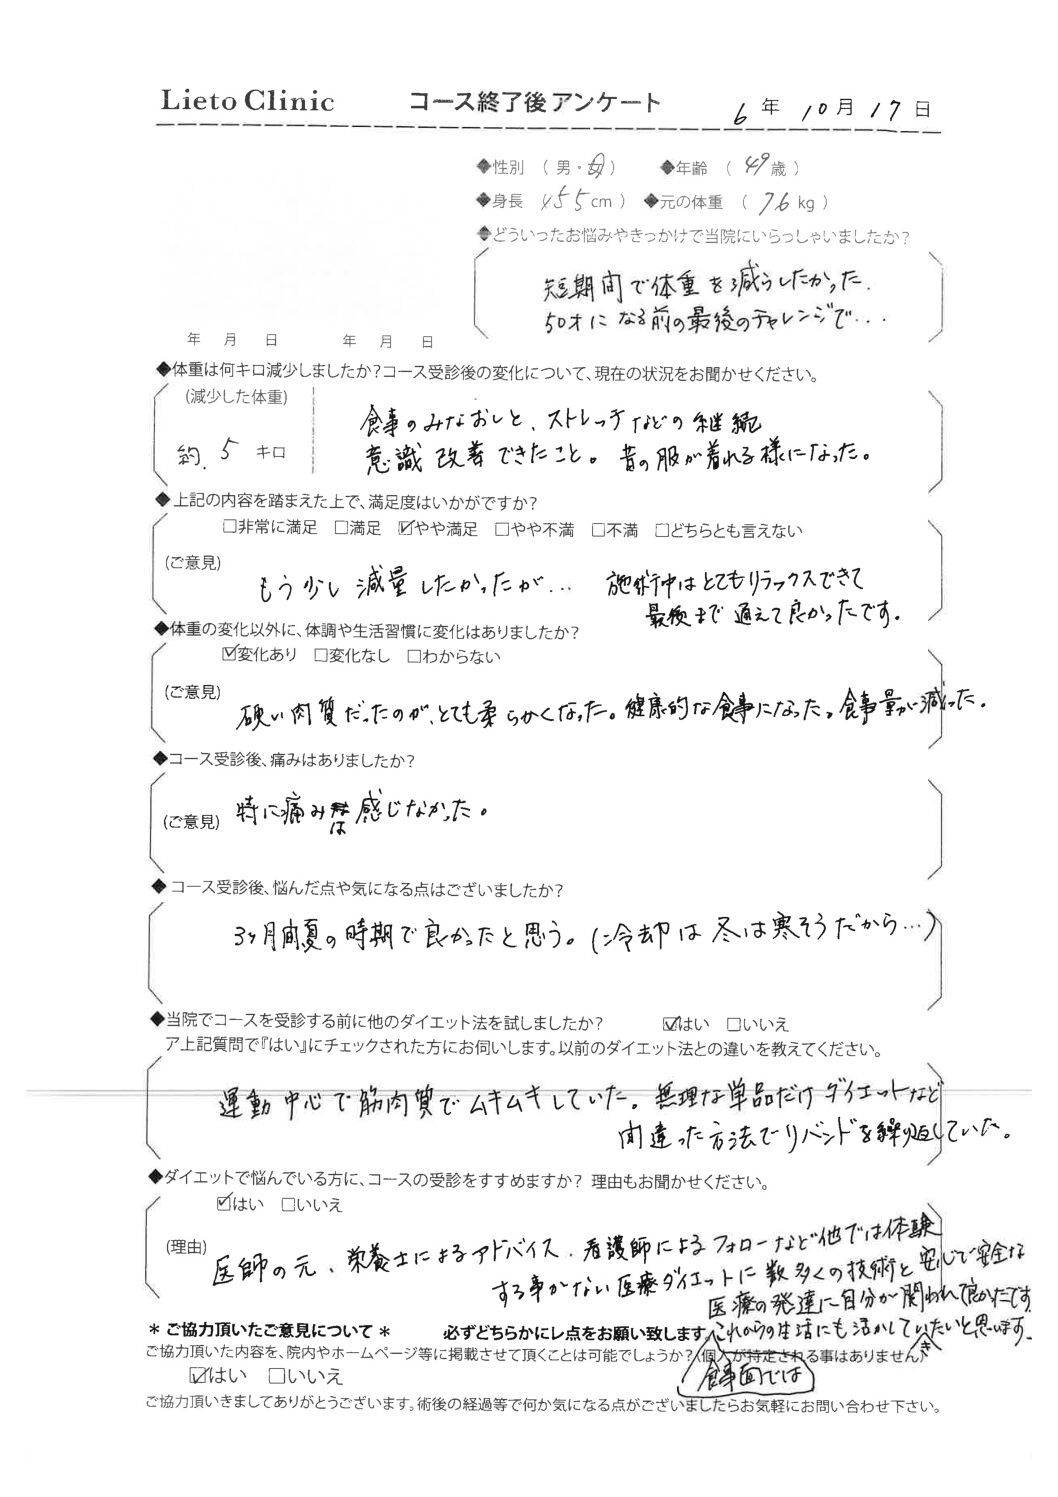 Lieto Clinic コース終了後アンケート 6年10月17日
◆性別 (男・女) ◆年齢 (49歳)
◆身長 155cm) ◆元の体重 (76kg)
◆どういったお悩みやきっかけで当院にいらっしゃいましたか?
短期間で体重を減らしたかった.
50才になる前の最後のチャレンジで...
年 月 日 年 月 日
◆体重は何キロ減少しましたか?コース受診後の変化について、現在の状況をお聞かせください。
(減少した体重)
約.5キロ
食事のみなおしと、ストレッチなどの継続
意識改善できたこと。昔の服が着れる様になった。
◆上記の内容を踏まえた上で、満足度はいかがですか?
□非常に満足 □満足 ☑やや満足 □やや不満 □不満 □どちらとも言えない
(ご意見)
もう少し減量したかったが... 施術中はとてもリラックスできて
最後まで通えて良かったです。
◆体重の変化以外に、体調や生活習慣に変化はありましたか?
☑変化あり □変化なし □わからない
(ご意見)
硬い肉質だったのが、とても柔らかくなった。健康的な食事になった。食事量が減った。
◆コース受診後、痛みはありましたか?
(ご意見) 特に痛みは感じなかった。
◆コース受診後、悩んだ点や気になる点はございましたか?
3ヶ月間夏の時期で良かったと思う。(冷却は冬は寒そうだから...)
◆当院でコースを受診する前に他のダイエット法を試しましたか? ☑はい □いいえ
ア上記質問で『はい』にチェックされた方にお伺いします。以前のダイエット法との違いを教えてください。
運動中心で筋肉質でムキムキしていた。無理な単品だけダイエットなど
間違った方法でリバンドを繰り返していた。
◆ダイエットで悩んでいる方に、コースの受診をすすめますか? 理由もお聞かせください。
☑はい □いいえ
(理由)
医師の元、栄養士によるアドバイス、看護師によるフォローなど他では体験
する事がない医療ダイエットに数多くの技術と安心で安全な
医療の発達に自分が関われて良かたです
食事面では これからの生活にも活かしていきたいと思います.
＊ ご協力頂いたご意見について ＊ 必ずどちらかにレ点をお願い致します
ご協力頂いた内容を、院内やホームページ等に掲載させて頂くことは可能でしょうか?(個人が特定される事はありません)
☑はい □いいえ
ご協力頂いきましてありがとうございます。術後の経過等で何か気になる点がございましたらお気軽にお問い合わせ下さい。